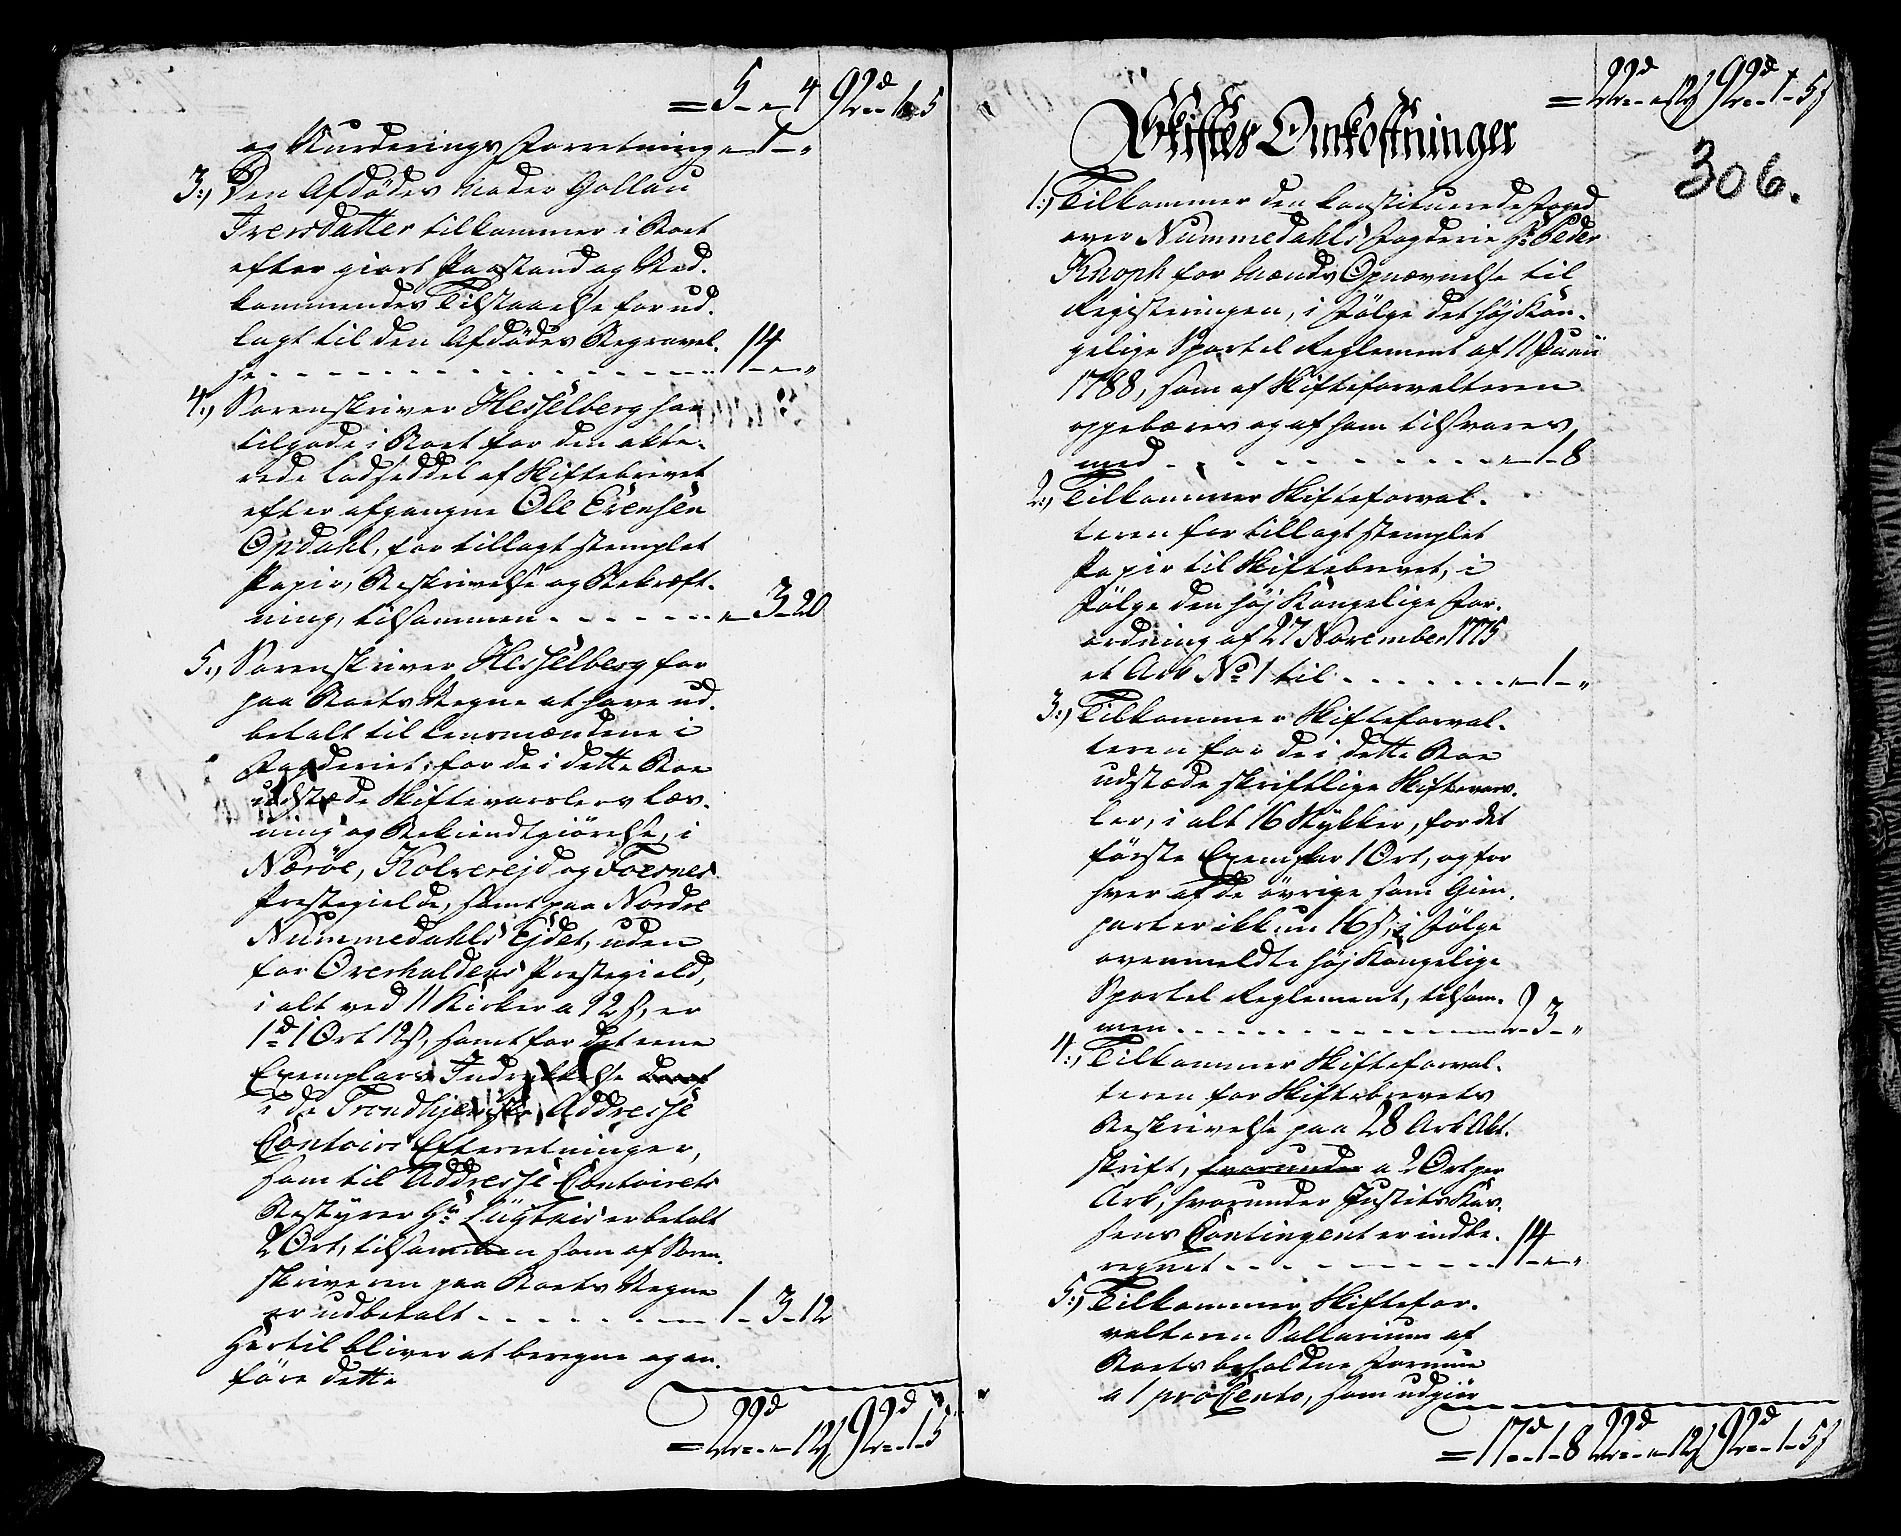 = 5 - „ - 4 92d - 1 - 5
og Vurderings Forretning „ - 1 - „
3:, Den Afdødes Moder Gollau
Iversdatter tilkommer i Boet
efter giort Paastand og Ved-
kommendes Tilstaaelse for ud-
lagt til den Afdødes Begravel-
se - - - - 14 - „ - „
4:, Sorenskriver Hesselberg har
tilgode i Boet for den akte-
rede Lodseddel af Skiftebrevet
efter afgangne Ole Evensen
Opdahl, for tillagt stemplet
Papir, Beskrivelse og Bekræft-
ning, tilsammen - - - - „ - 3 - 20
5:, Sorenskriver Hesselberg for
paa Boets Vegne at have ud-
betalt til Lensmændene i
Fogderiet, for de i dette Boe
udstæde Skiftevarslers Læs-
ning og Bekiendtgiørelse, i
Nærøe, Kolvereid og Foesnes
Prestegielde, samt paa Nordre
Nummedahls Ejdet, uden
for Overhaldens Prestegield,
i alt ved 11 Kirker a 12 s, er
1d 1 Ort 12 s, samt for det eene
Exemplars Indrykkelse
i de Trondhjemske Addresse
Contoirs Efterretninger,
som til Addresse Contoirets
Bestyrer Hr Lügteis er betalt
2 Ort, tilsammen som af Soren-
skriveren paa Boets Vegne
er udbetalt - - - - 1 - 3 - 12
Hertil bliver at beregne og an-
føre dette
= 22d - „ - 12 s 92d - 1 - 5
= 22d - „ - 12 s 92d - 1 - 5 s
306.
Skiftes Omkostninger
1:, Tilkommer den konstituerede Foged
over Nummedahls Fogderie Hr Peder
Knoph for Mænds Opnævnelse til
Registeringen, i Følge det høj Kon-
gelige Sportel Reglement af 11 Junii
1788, som af Skifteforvalteren
oppebæres og af ham tilsvares
med - - - - „ - 1 - 8
2:, Tilkommer Skifteforval-
teren for tillagt stemplet
Papir til Skiftebrevet, i
Følge den høj Kongelige For-
ordning af 27 November 1775
et Ark No 1 til - - - - „ - 1 - „
3:, Tilkommer Skifteforval-
teren for de i dette Boe
udstæde skriftlige Skiftevars-
ler, i alt 16 Stykker, for det
første Exemplar 1 Ort, og for
hver af de øvrige som Gien-
parter ikkun 16 s, i Følge
ovenmeldte høj Kongelige
Sportel Reglement, tilsam-
men - - - - 2 - 3 - „
4:, Tilkommer Skifteforval-
teren for Skiftebrevets
Beskrivelse paa 28 Ark Akt-
skrift, hvorunder a 2 Ort per
Ark, hvorunder Justits Kas-
sens Contingent er indbe-
regnet - - - - 14 - „ - „
5:, Tilkommer Skiftefor-
valteren Sallarium af
Boets beholdne Formue
a 1 pro Cento, som udgiør
= 17d - 1 - 8 22d - „ - 12 s 92d - 1 - 5 s